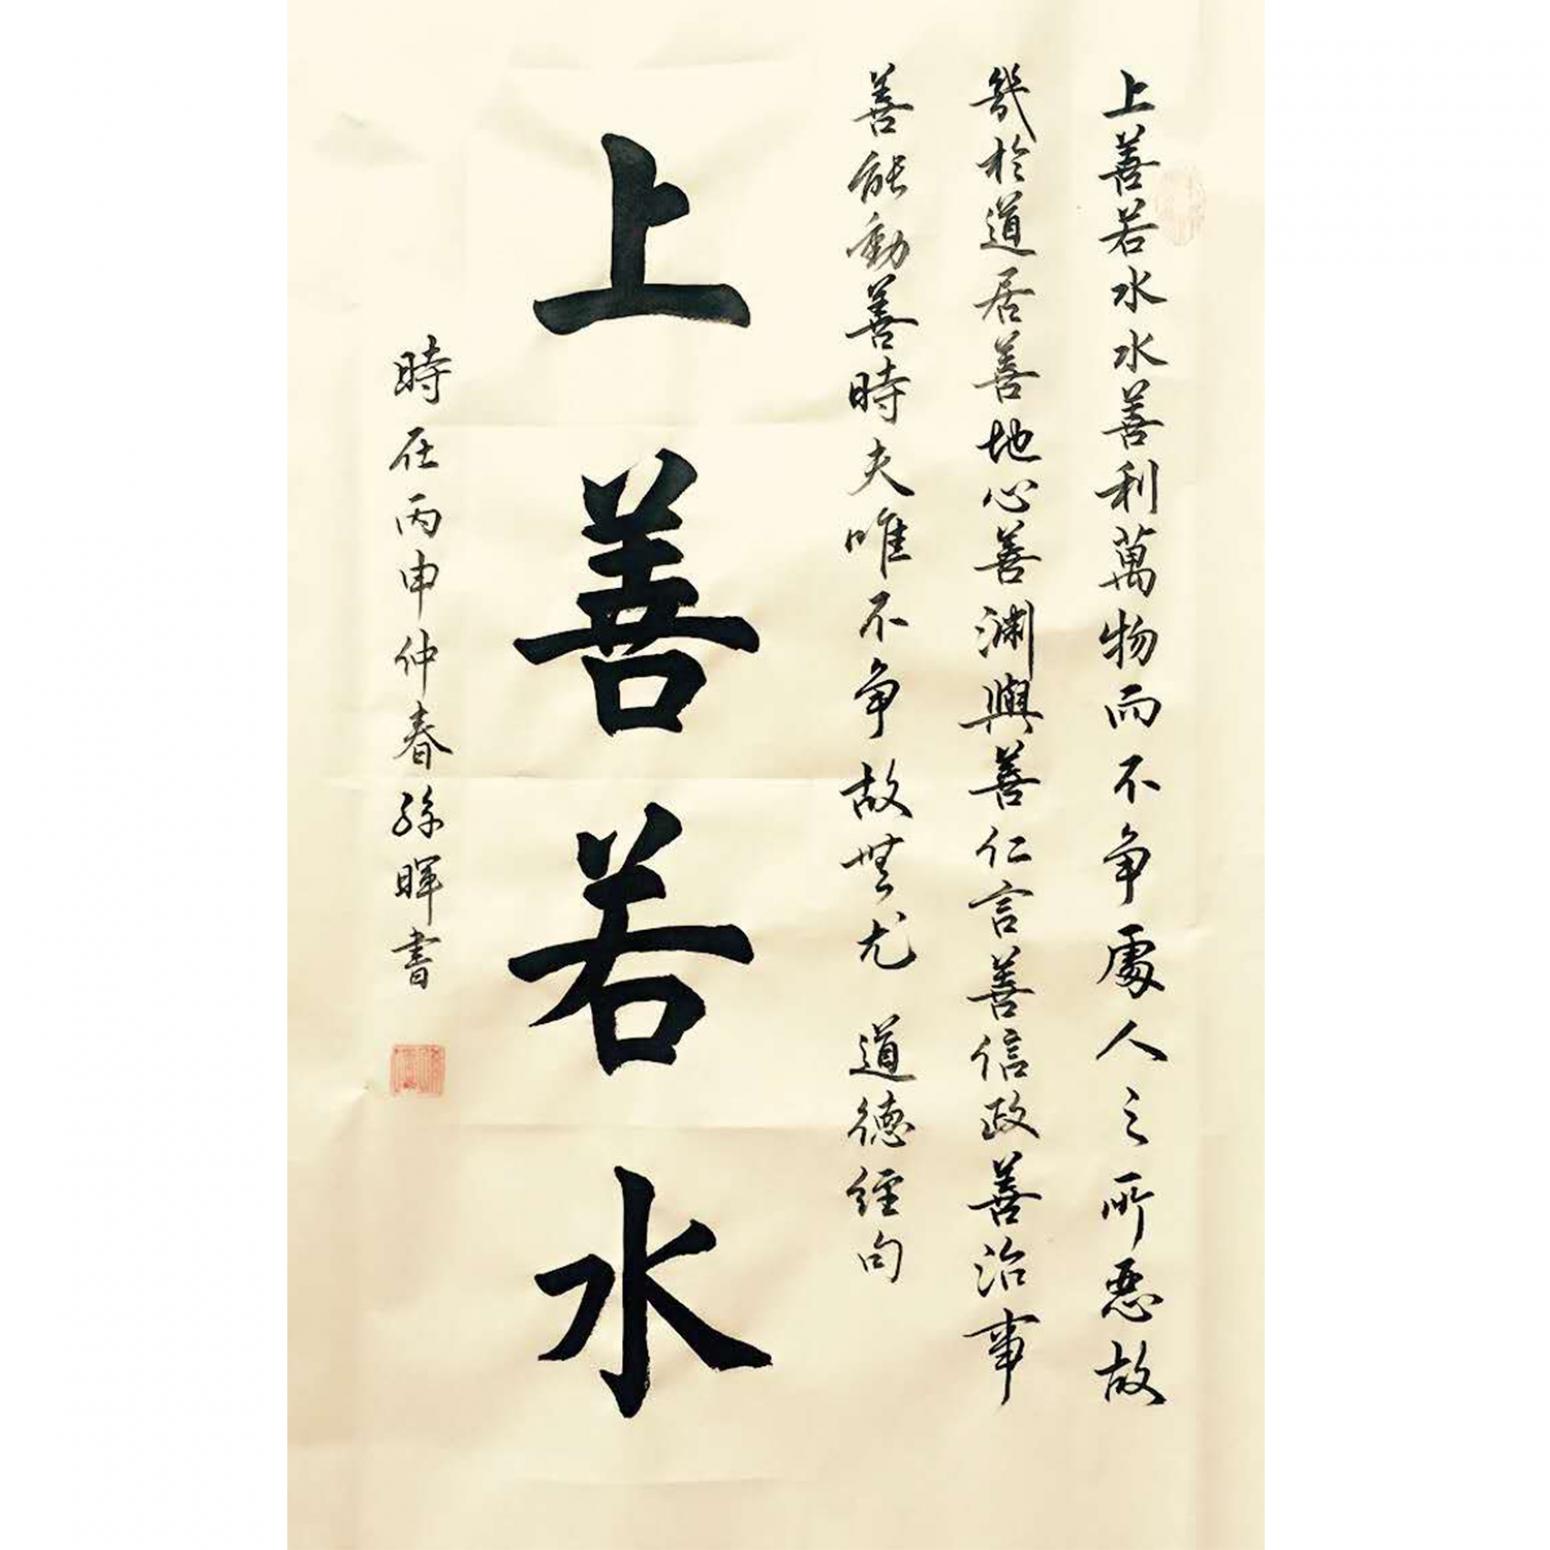 上善若水水善利萬物而不争處人之所惡故
幾於道居善地心善淵與善仁言善信政善治事
善能動善時夫唯不争故無尤 道德經句
上善若水
時在丙申仲春孫暉書